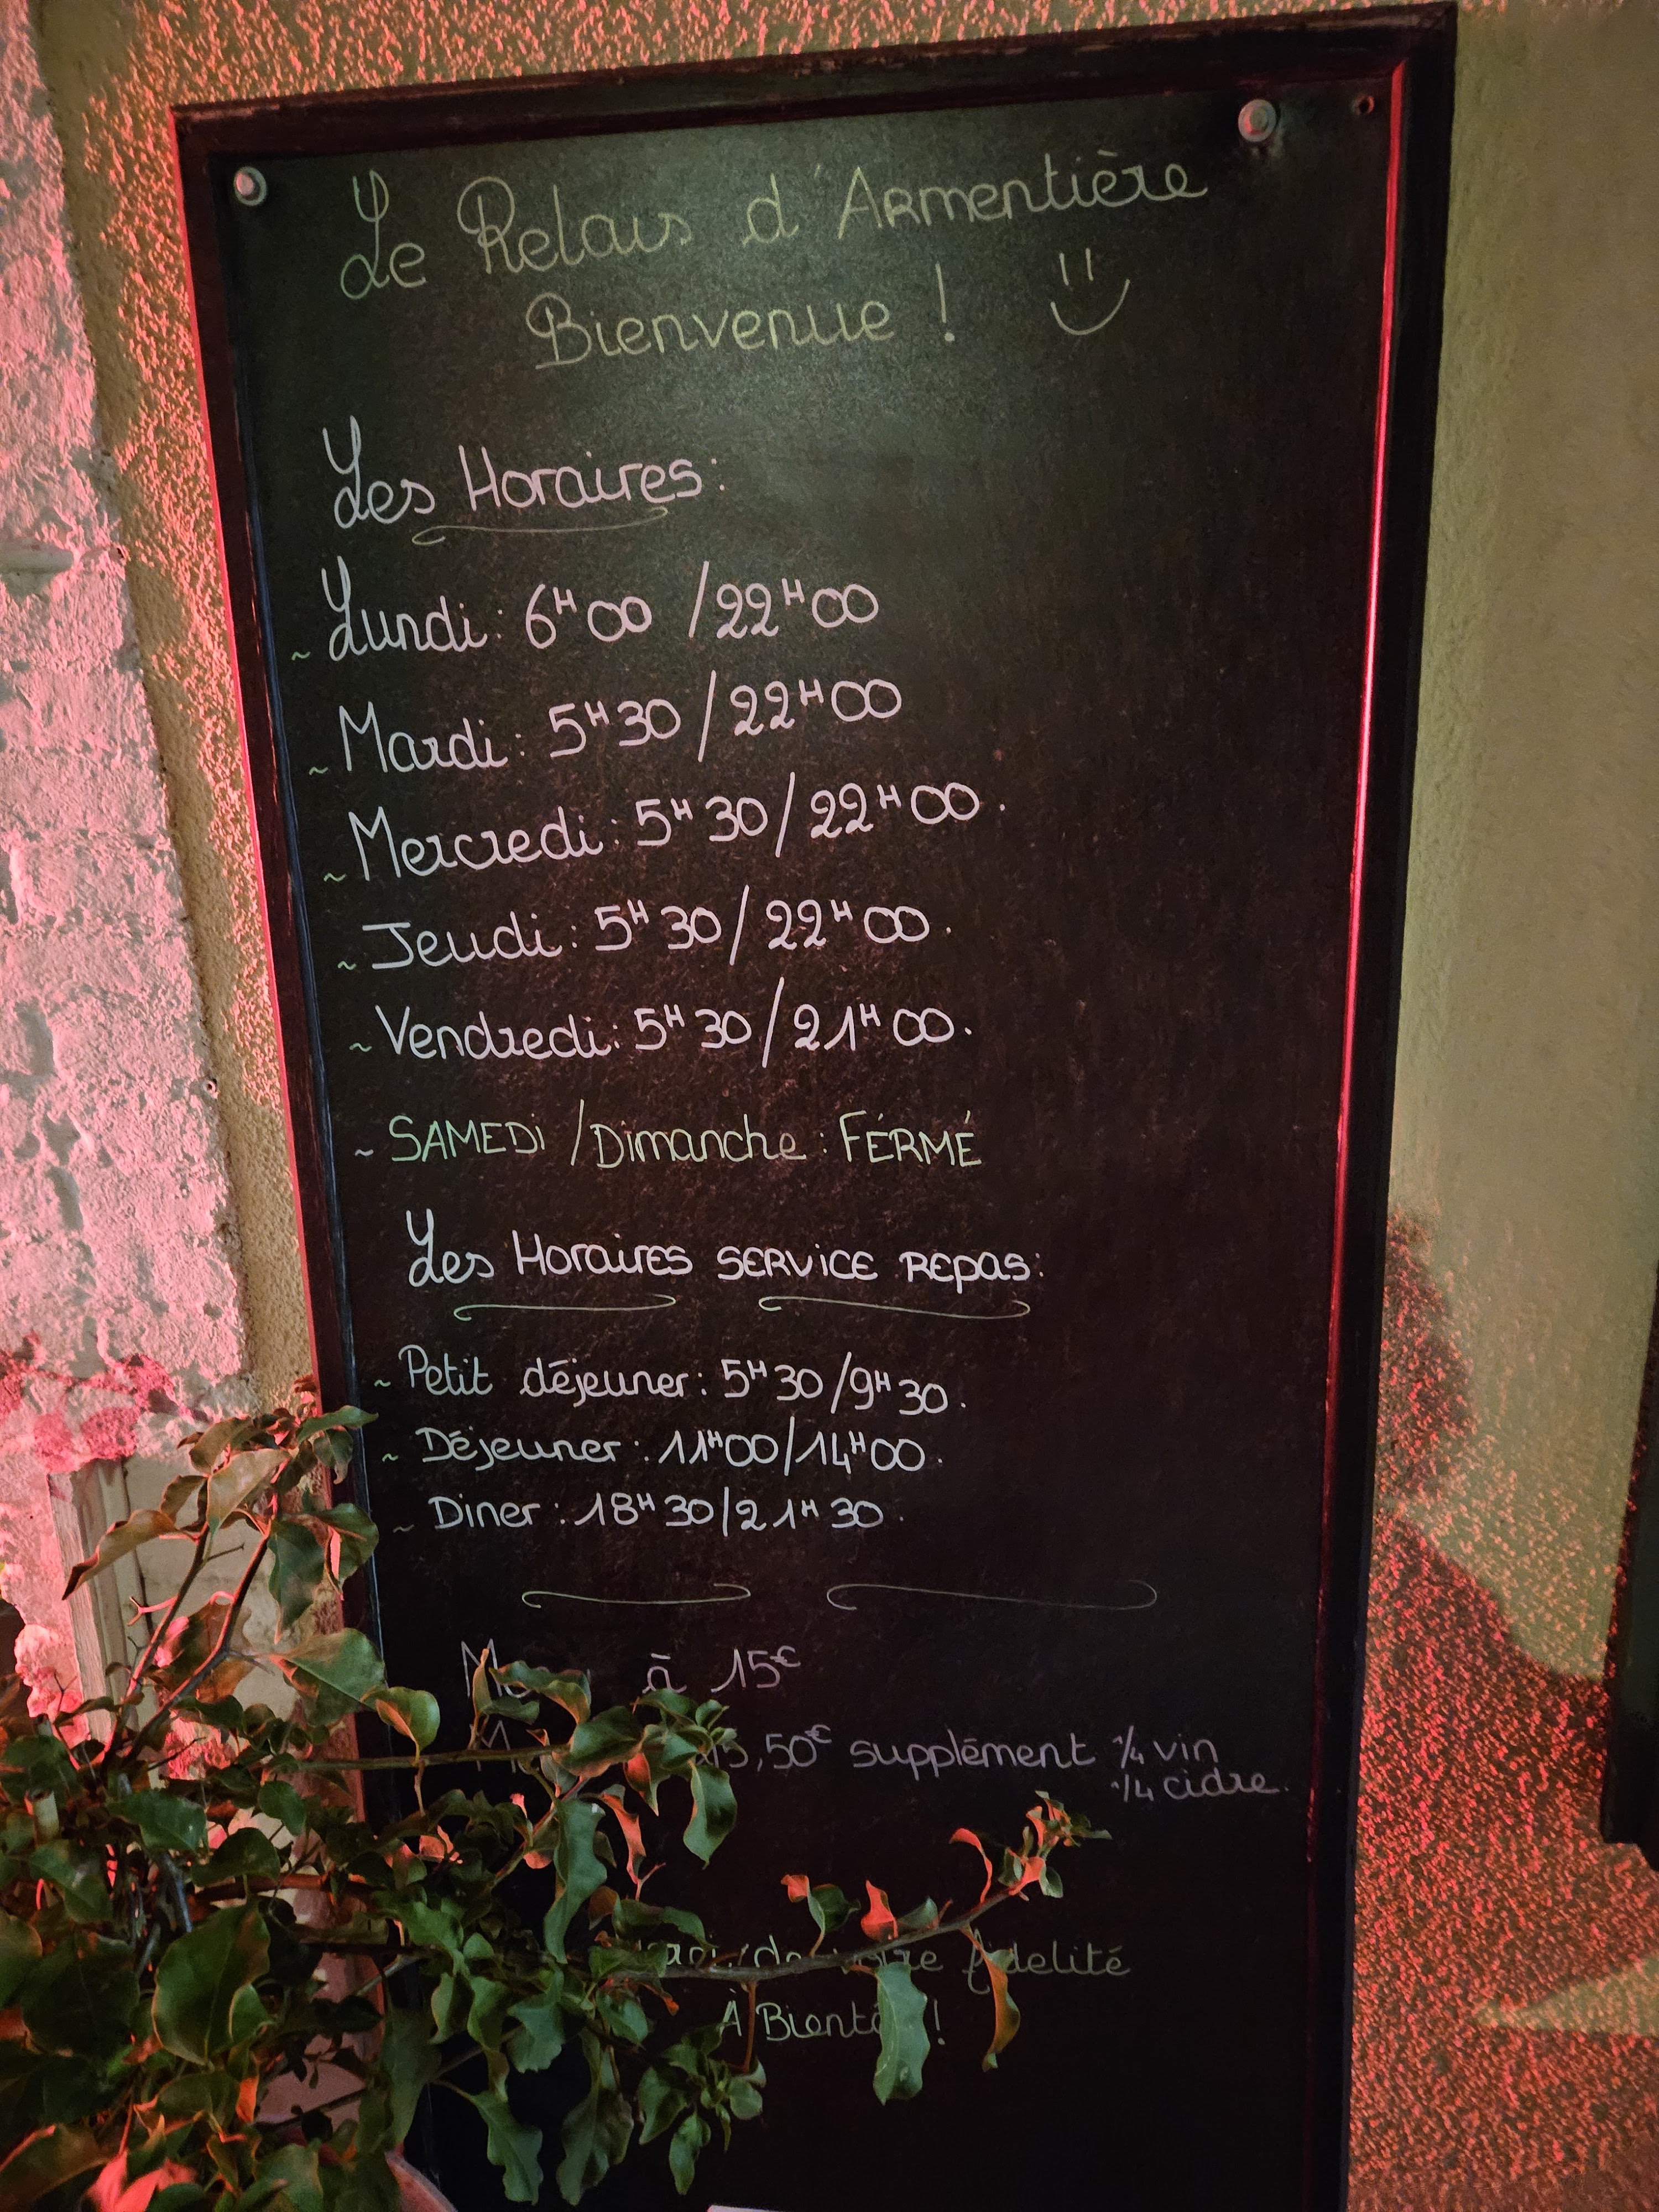 Le Relais d'Armentière
Bienvenue !
Les Horaires:
~ Lundi: 6H00 /22H00
~ Mardi: 5H30 /22H00
~ Mercredi: 5H30/22H00.
~ Jeudi: 5H30/22H00.
~ Vendredi: 5H30/21H00.
~ SAMEDI /Dimanche: FÉRMÉ
Les Horaires SERVICE REPAS:
~ Petit déjeuner: 5H30/9H30.
~ Déjeuner: 11H00/14H00.
~ Diner: 18H30/21H30.
à 15€
5,50€ supplément 1/4 vin
1/4 cidre.
fidelité
À Bientôt !